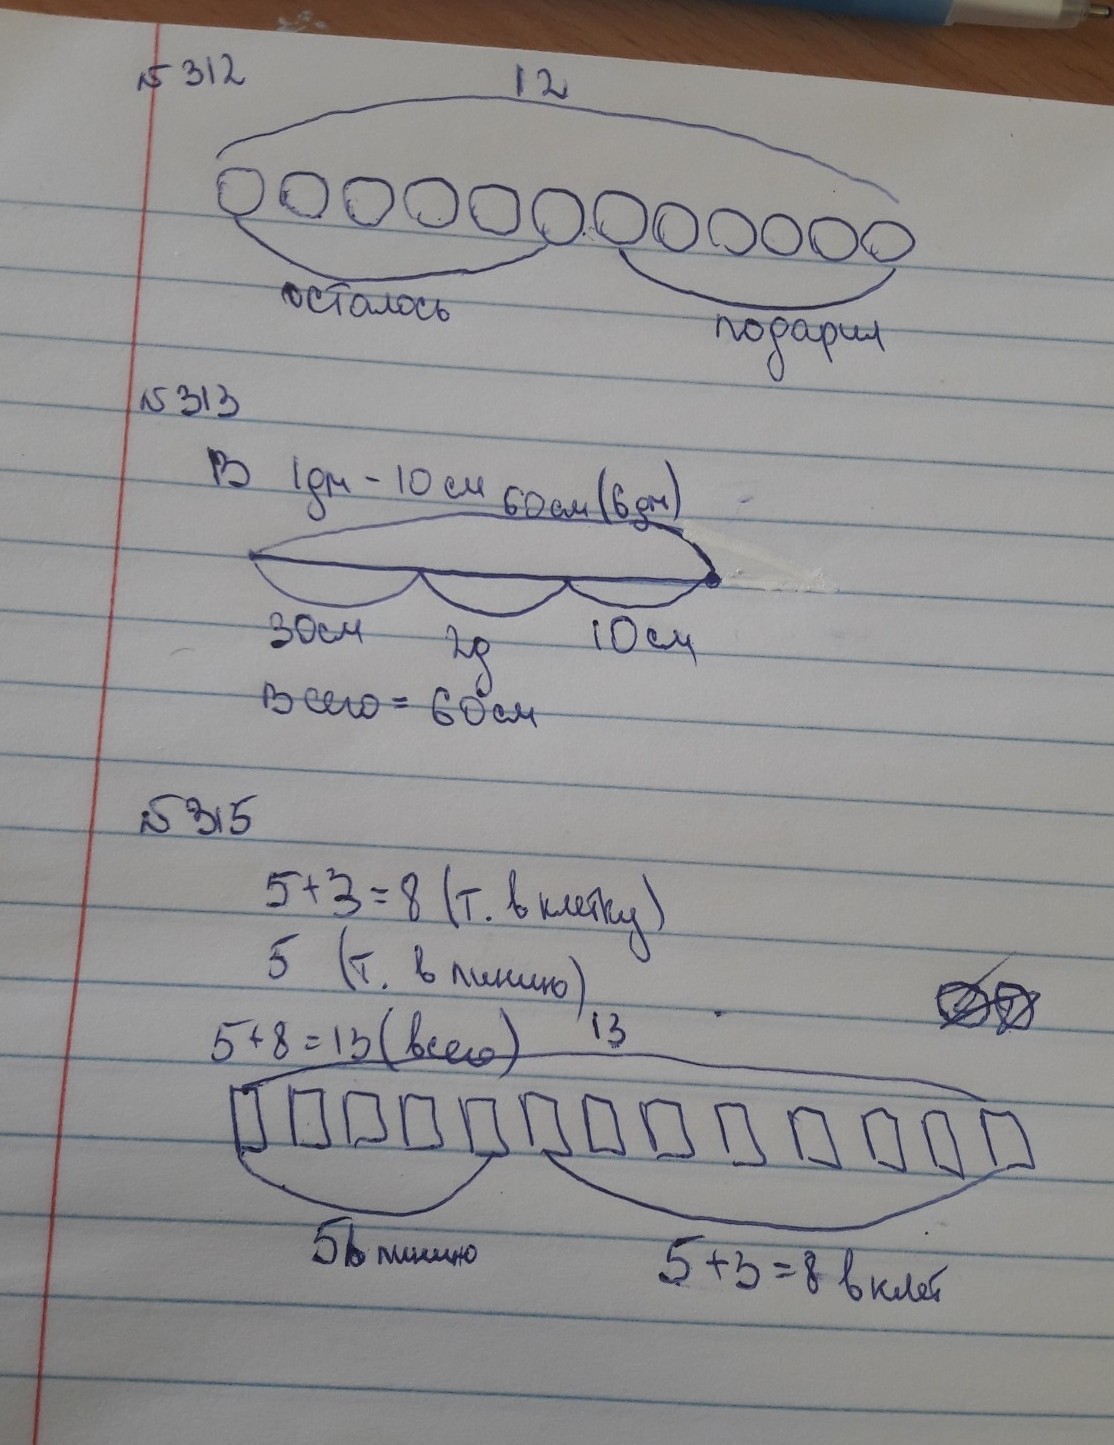 №312
12
осталось
подарил
№313
В 1дм - 10 см
60см (6дм)
30см 2д 10см
Всего = 60см
№315
5+3=8 (т. в клетку)
5 (т. в линию)
5+8=13 (всего)
13
5 в линию
5+3=8 в клет